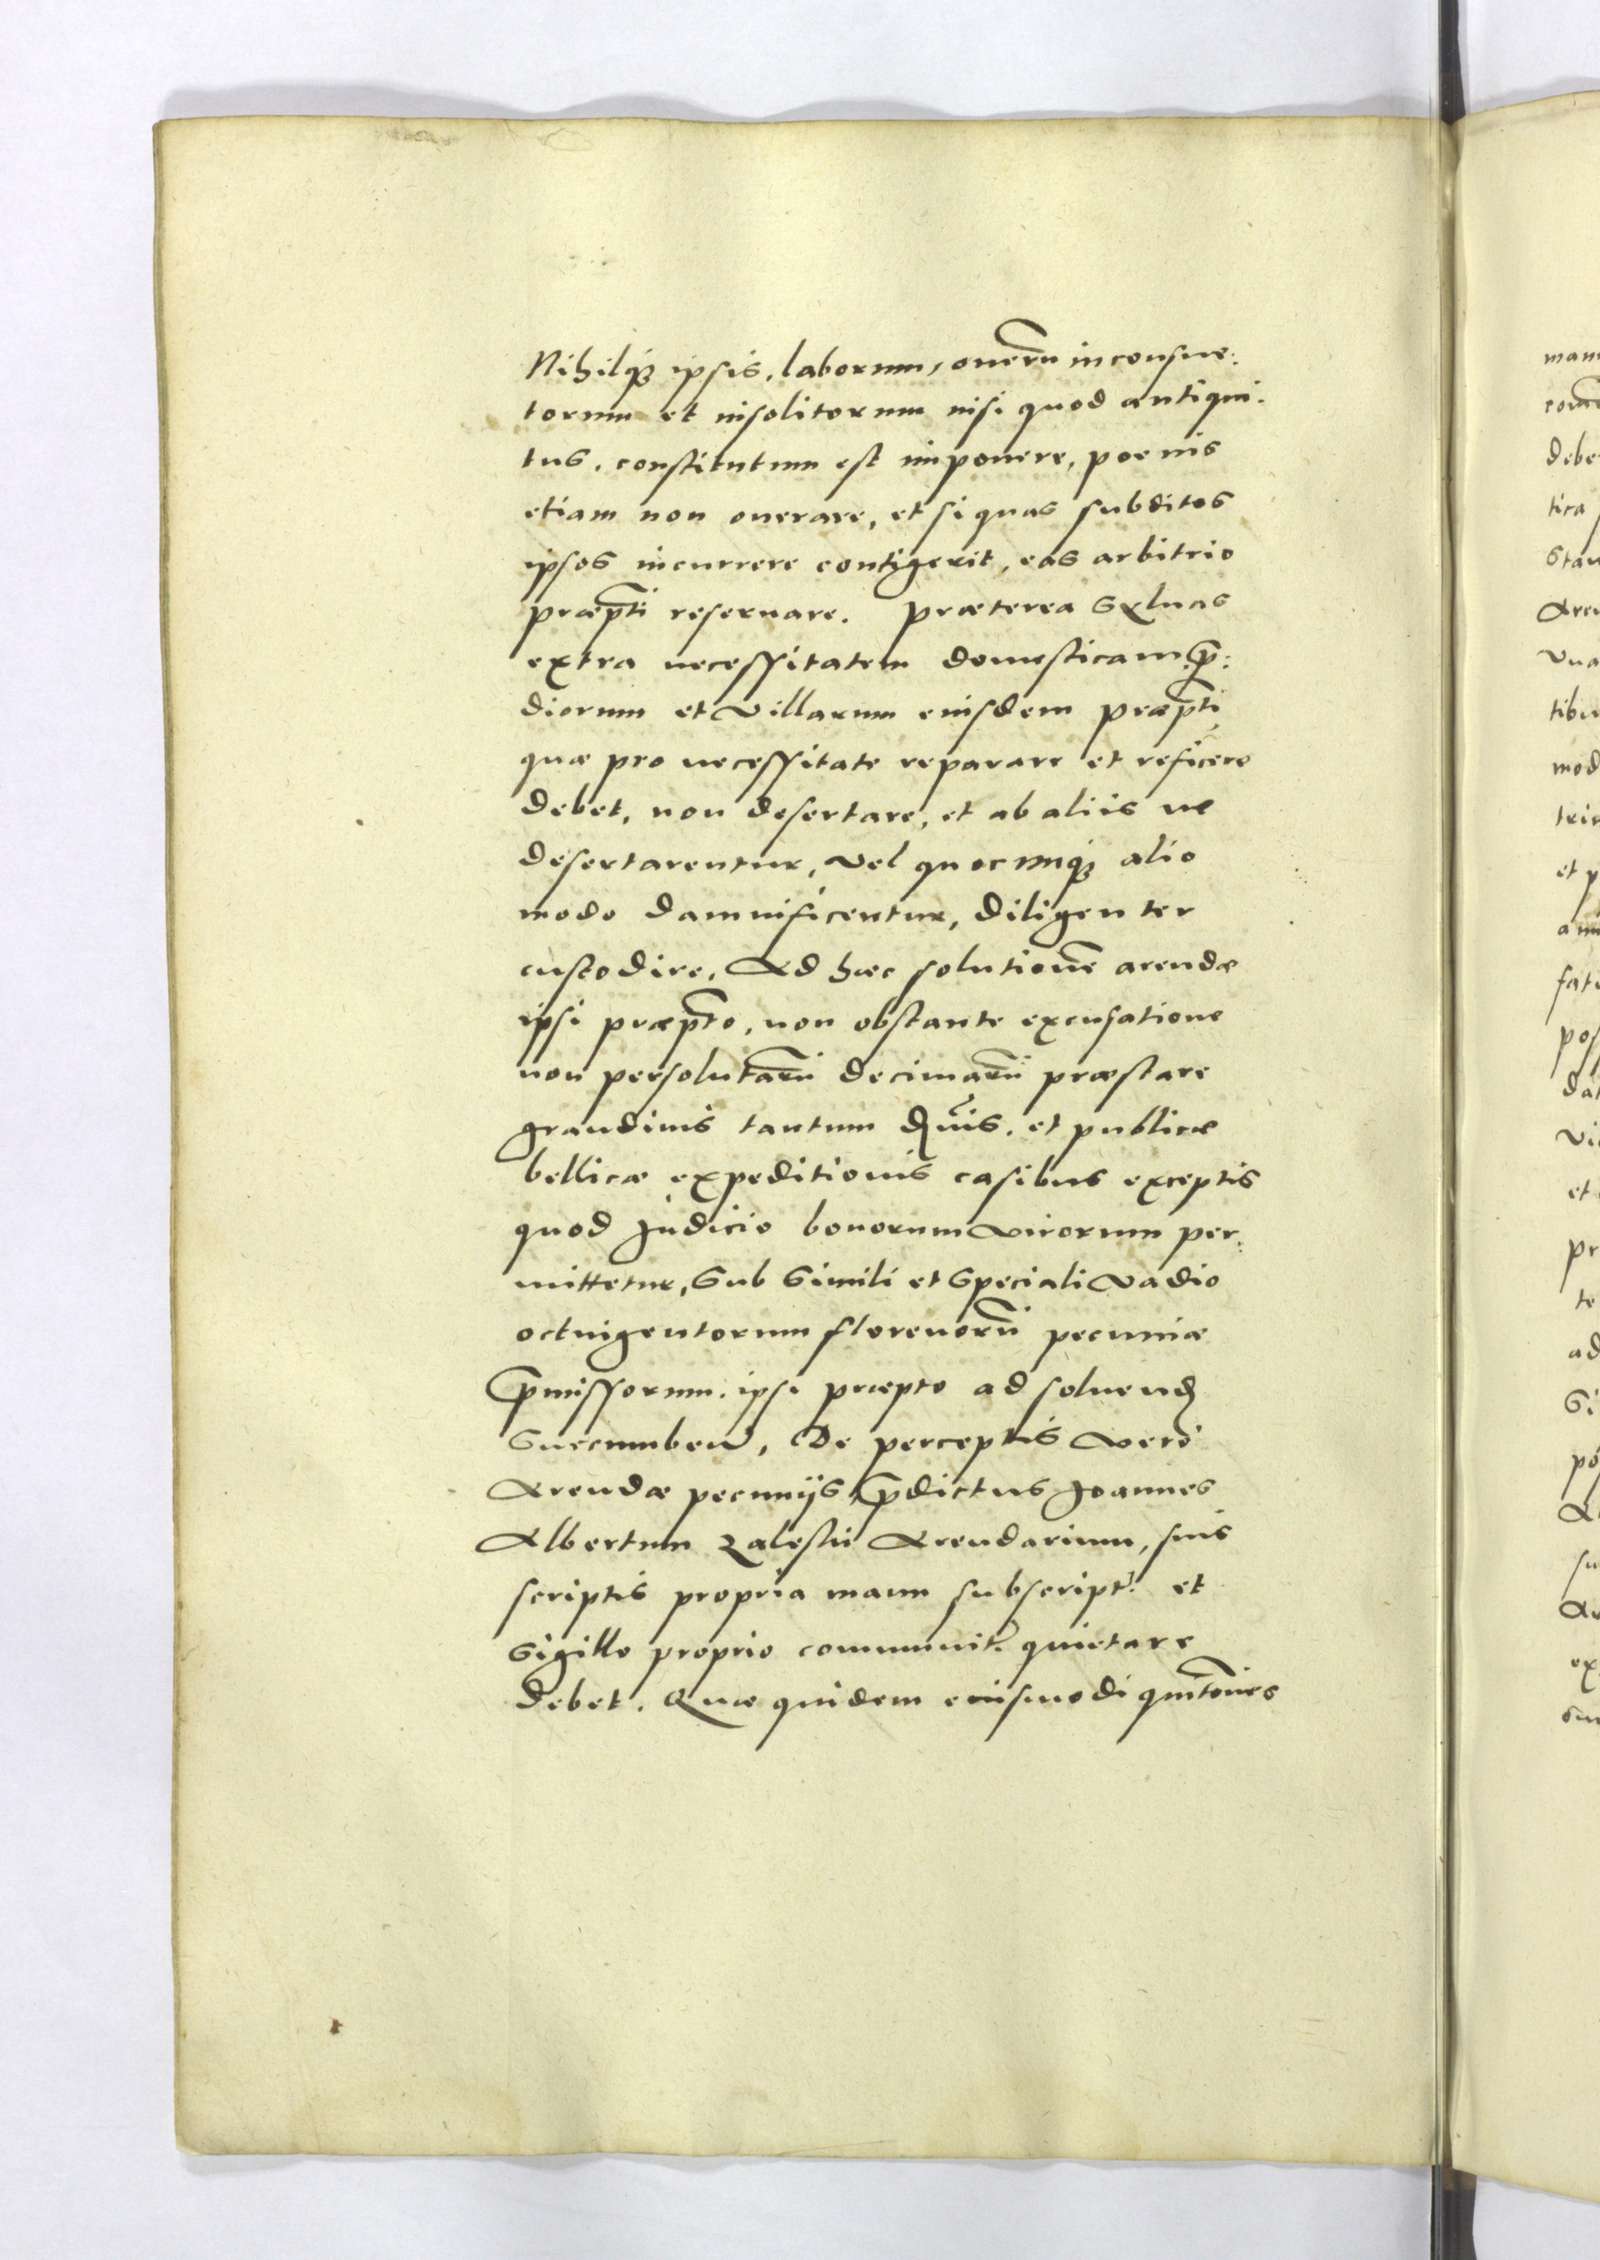 Nihilq₃ ipsis, laborum, onerū inconsue:
torum et insolitorum nisi quod antiqui:
tus, constitutum est imponere, poenis
etiam non onerare, et si quas subditos
ipsos incurrere contigerit, eas arbitrio
præp̄ti reseruare. Præterea Syluas
extra necessitatem domesticam p̄:
diorum et Villarum eiusdem præp̄ti
quæ pro necessitate reparare et reficere
debet, non desertare, et ab aliis ne
desertarentur, Vel quocunq₃ alio
modo damnificentur, diligenter
custodire, Ad hæc solutionē arendæ
ipsi præp̄to, non obstante excusatione
non persolutarū decimarū præstare
grandinis tantum et publicæ
bellicæ expeditionis casibus exceptis
quod Judicio bonorum Virorum per:
mittetur, Sub Simili et Speciali Vadio
octuigentorum florenorū pecuniæ
p̄missorum. ipsi præpto ad soluend
Succumben, De perceptis Verò
Arendæ pecuniis, p̄dictus Joannes
Albertum Zalesky Arendarium, suis
scriptis propria manu subscript. et
Sigillo proprio communit. quietare
debet. Quæ quidem eiusmodi quitōnes
mam
debe
tica
Stau
Aren
tibu
mod
et p
fati
pos
et
pr
te
ad
Si
su
ex